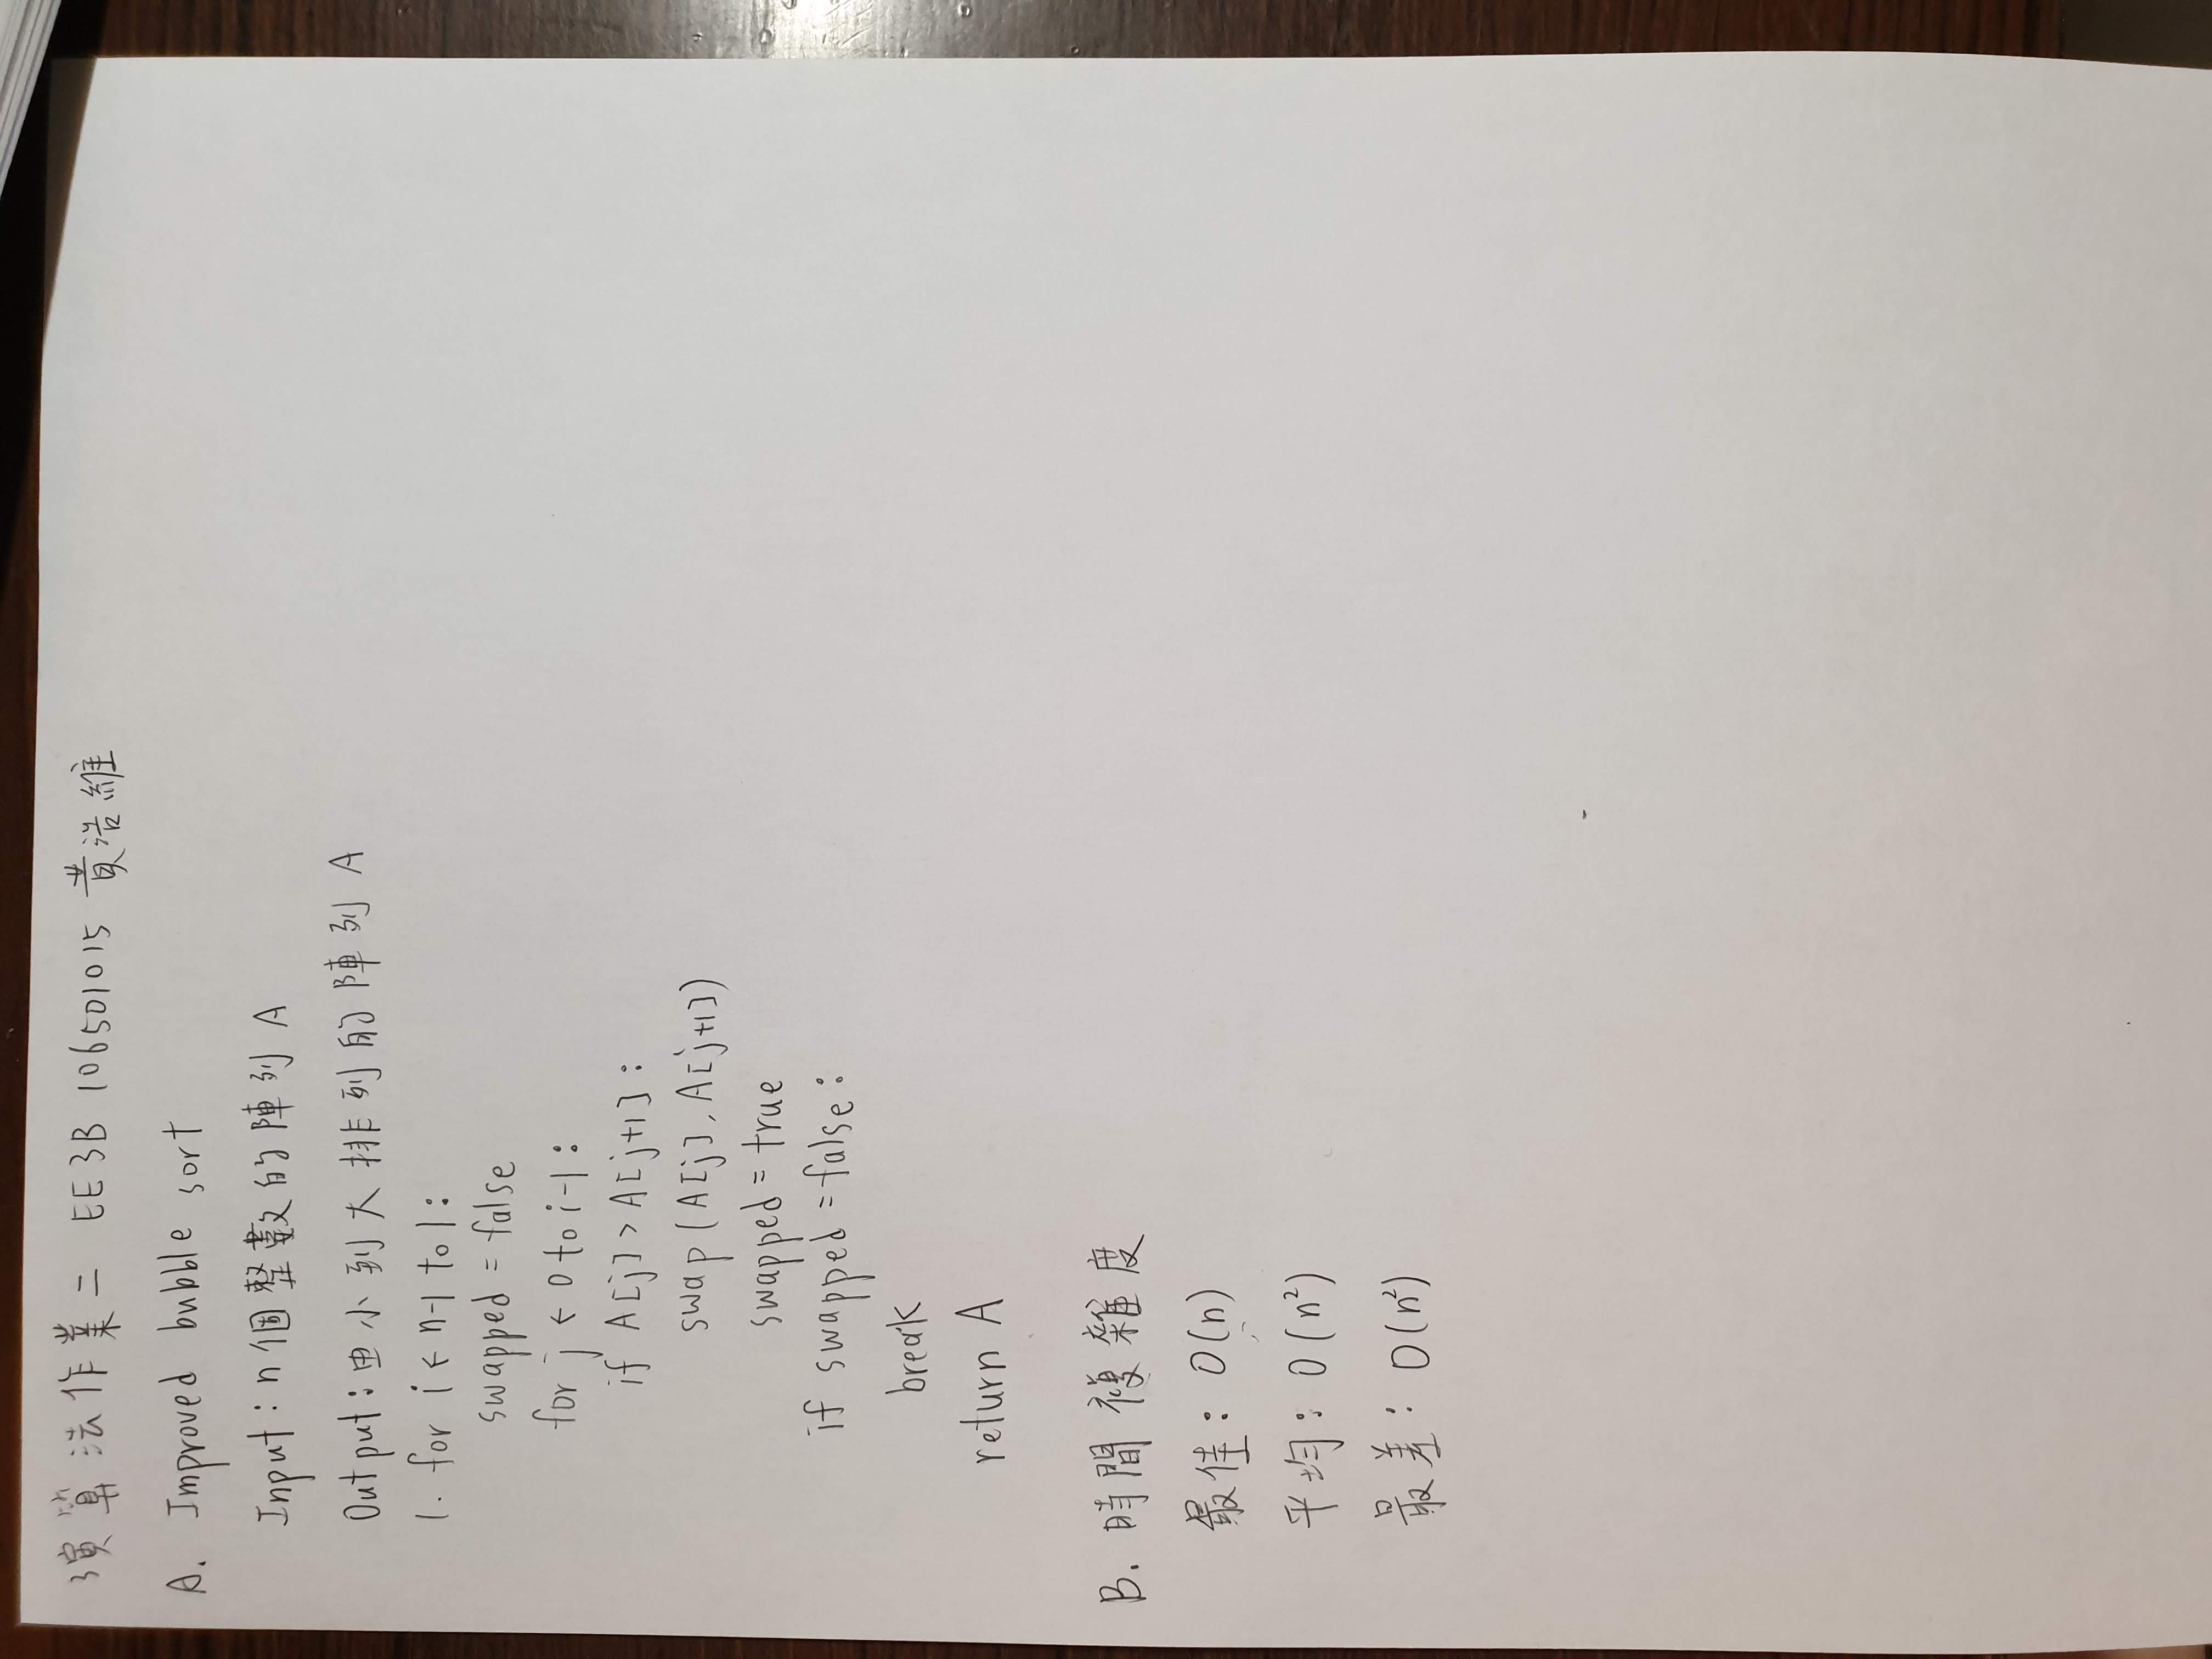 演算法作業二 EE3B 106501015 黃浩維
A. Improved bubble sort
Input: n個整數的陣列 A
Output: 由小到大排列的陣列 A
1. for i ← n-1 to 1:
swapped = false
for j ← 0 to i-1:
if A[j] > A[j+1]:
swap (A[j], A[j+1])
swapped = true
if swapped = false:
break
return A
B. 時間複雜度
最佳: O(n)
平均: O(n²)
最差: O(n²)